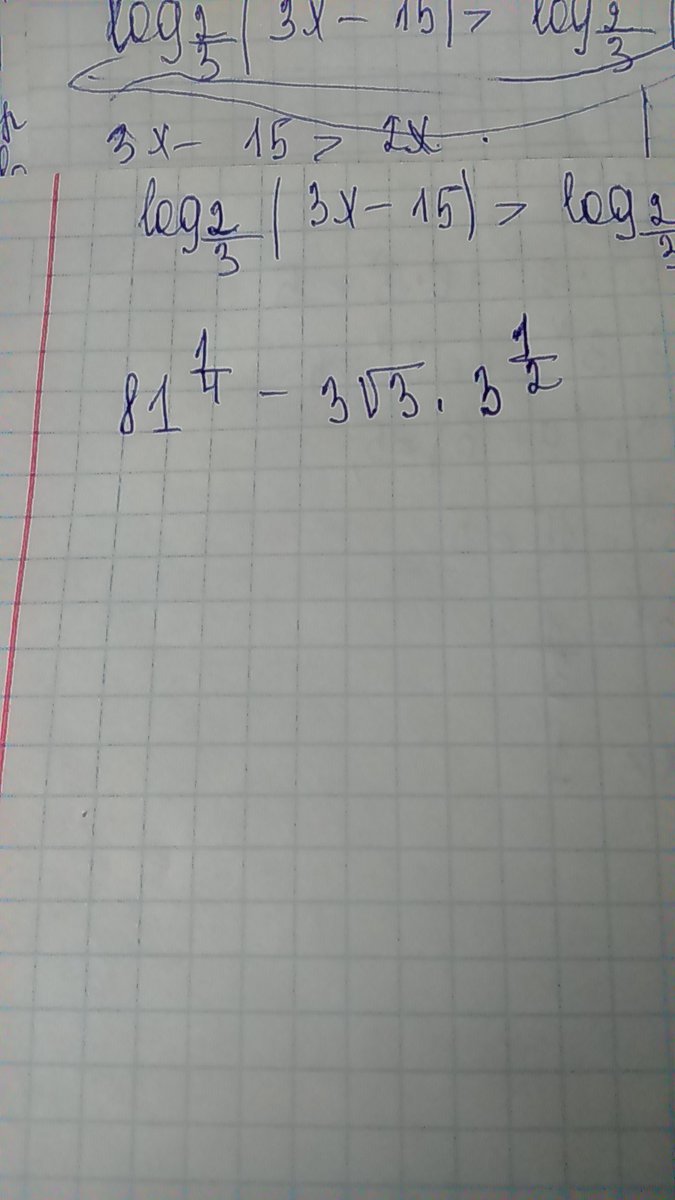 log 2/3 (3x - 15) > log 2/3
3x - 15 > 2x.
log 2/3 (3x - 15) > log 2/3
81^(1/4) - 3√3 . 3^(1/2)